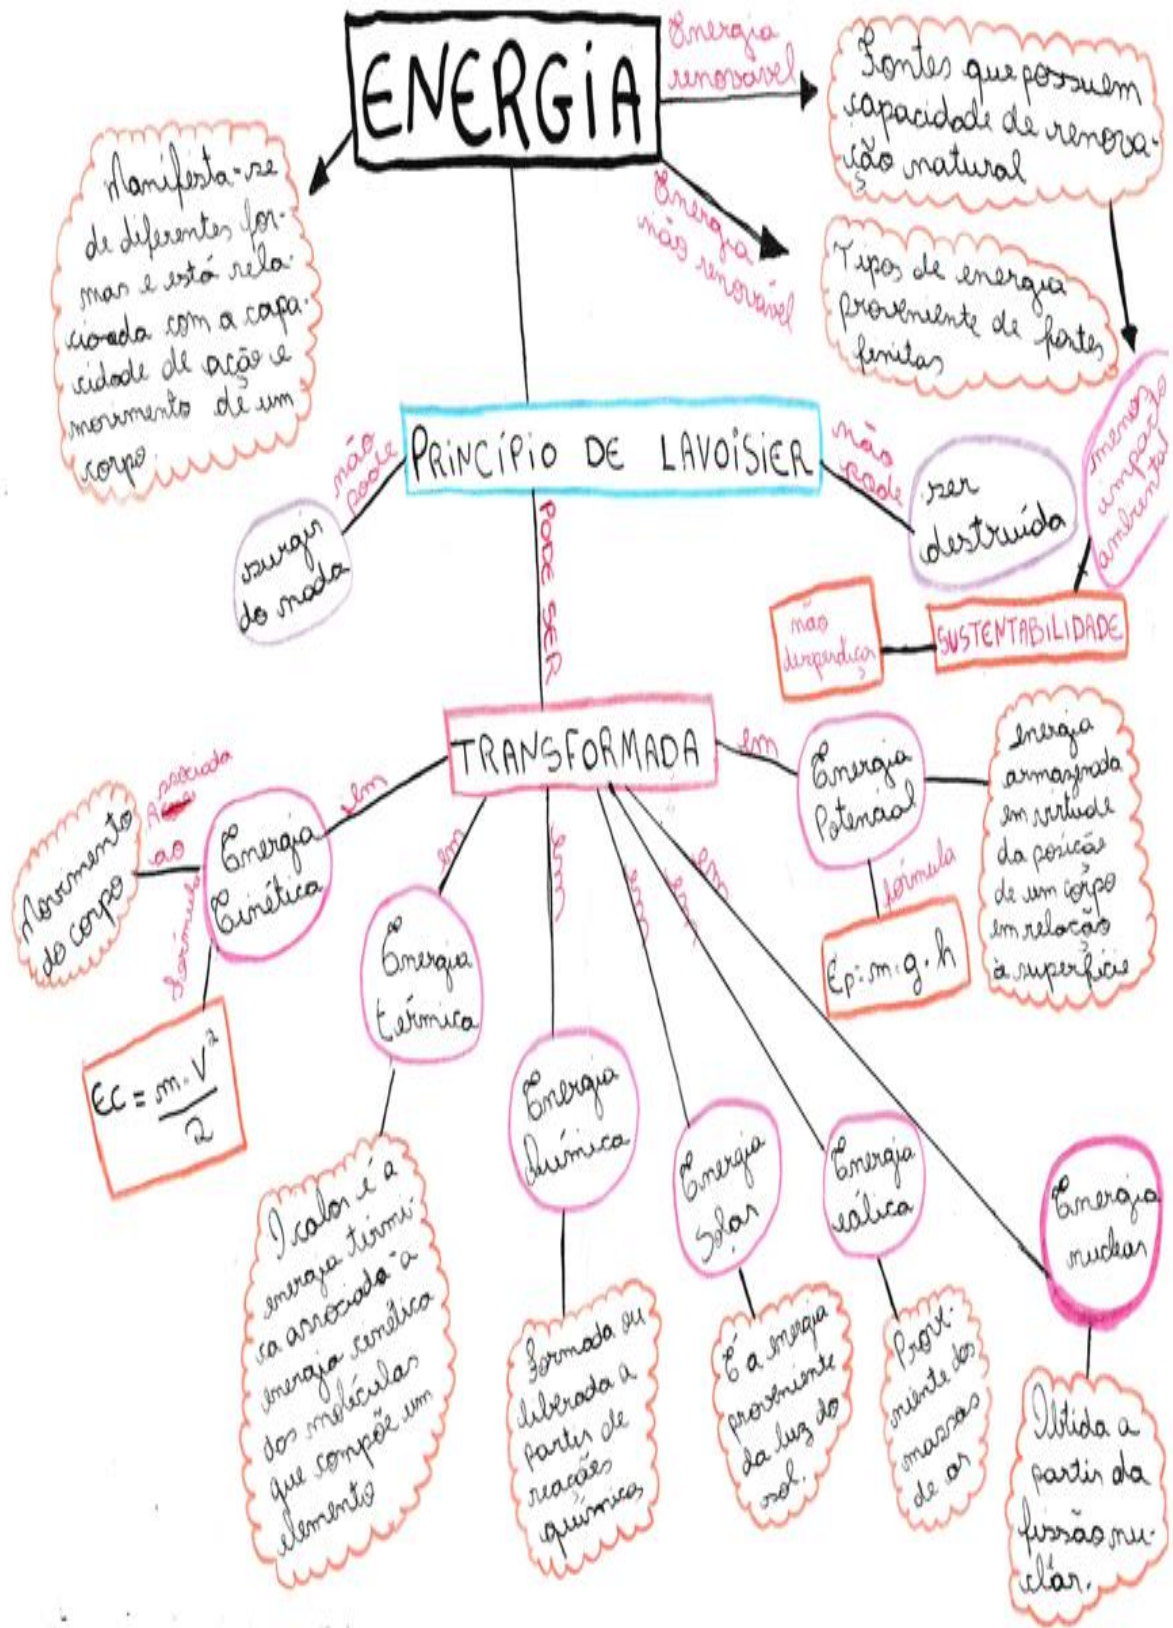 ENERGIA
Energia
renovável
Fontes que possuem
capacidade de renova-
ção natural
Energia
não renovável
Tipos de energia
proveniente de fontes
finitas
Manifesta-se
de diferentes for-
mas e está rela-
cionada com a capa-
cidade de ação e
movimento de um
corpo.
menos
impacto
ambiental
SUSTENTABILIDADE
não
desperdiçar
PRINCÍPIO DE LAVOISIER
não
pode
surgir
do nada
não
pode
ser
destruída
PODE SER
TRANSFORMADA
em
Energia
Cinética
Associada
ao
Movimento
do corpo
fórmula
EC = m. V²
2
em
Energia
térmica
O calor é a
energia térmi-
ca associada à
energia cinética
das moléculas
que compõe um
elemento
em
Energia
Química
Formada ou
liberada a
partir de
reações
químicas
em
Energia
Solar
É a energia
proveniente
da luz do
sol.
em
Energia
eólica
Prove-
niente das
massas
de ar
em
Energia
nuclear
Obtida a
partir da
fissão nu-
clear.
em
Energia
Potencial
energia
armazenada
em virtude
da posição
de um corpo
em relação
à superfície
fórmula
Ep: m.g.h